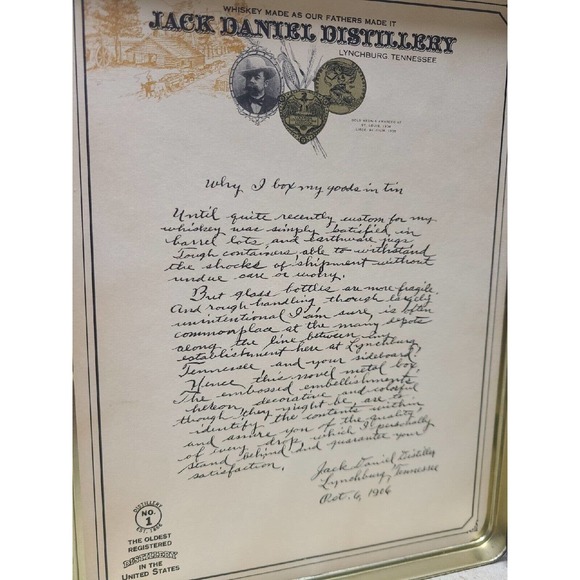 WHISKEY MADE AS OUR FATHERS MADE IT
JACK DANIEL DISTILLERY
LYNCHBURG, TENNESSEE
Why I box my goods in tin
Until quite recently custom for my
whiskey was simply satisfied in
barrel lots and earthware jugs.
Tough containers able to withstand
the shocks of shipment without
undue care or worry.
But glass bottles are more fragile.
And rough handling though largely
unintentional I am sure, is often
commonplace at the many depots
along the line between my
establishment here at Lynchburg,
Tennessee, and your sideboard.
Hence this novel metal box.
The embossed embellishments
hereon, decorative and colorful
though they might be, are to
identify the contents within
and assure you of the quality
of every drop which I personally
stand behind and guarantee your
satisfaction.
Jack Daniel Distiller
Lynchburg, Tennessee
Oct. 6, 1906
DISTILLERY
NO.
1
EST. 1866
THE OLDEST
REGISTERED
DISTILLERY
IN THE
UNITED STATES